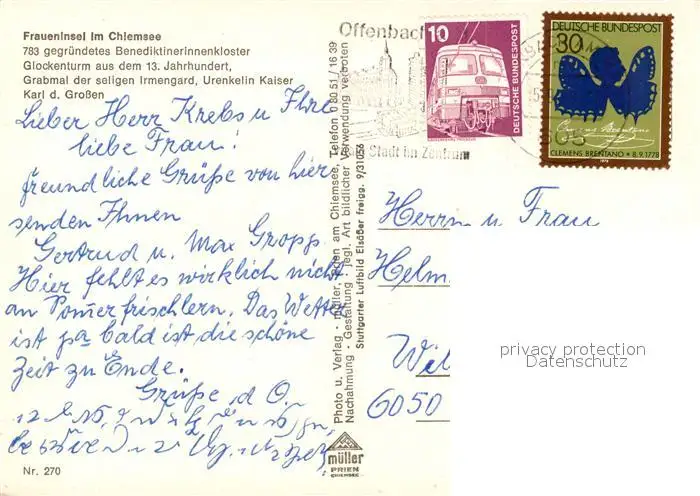 Fraueninsel im Chiemsee
783 gegründetes Benediktinerinnenkloster
Glockenturm aus dem 13. Jahrhundert,
Grabmal der seligen Irmengard, Urenkelin Kaiser
Karl d. Großen
Lieber Herr Krebs u Ihre
liebe Frau!
freundliche Grüße von hier
senden Ihnen
Gertrud u. Max Gropp
Hier fehlt es wirklich nicht
an
Das Wetter
ist
bald ist die schöne
Zeit zu Ende.
Grüße d O.
Nr. 270
Photo u. Verlag · müller, Prien am Chiemsee, Telefon 0 80 51 / 16 39
Nachahmung · Gestaltung · jegl. Art bildlicher Verwendung verboten
Stuttgarter Luftbild Elsäßer freigg. 9/31056
müller
PRIEN
CHIEMSEE
Offenbach
Stadt im Zentrum
10
DEUTSCHE BUNDESPOST
DEUTSCHE BUNDESPOST
30
Clemens Brentano
CLEMENS BRENTANO * 8.9.1778
1978
Herrn u Frau
Helm
6050
privacy protection
Datenschutz